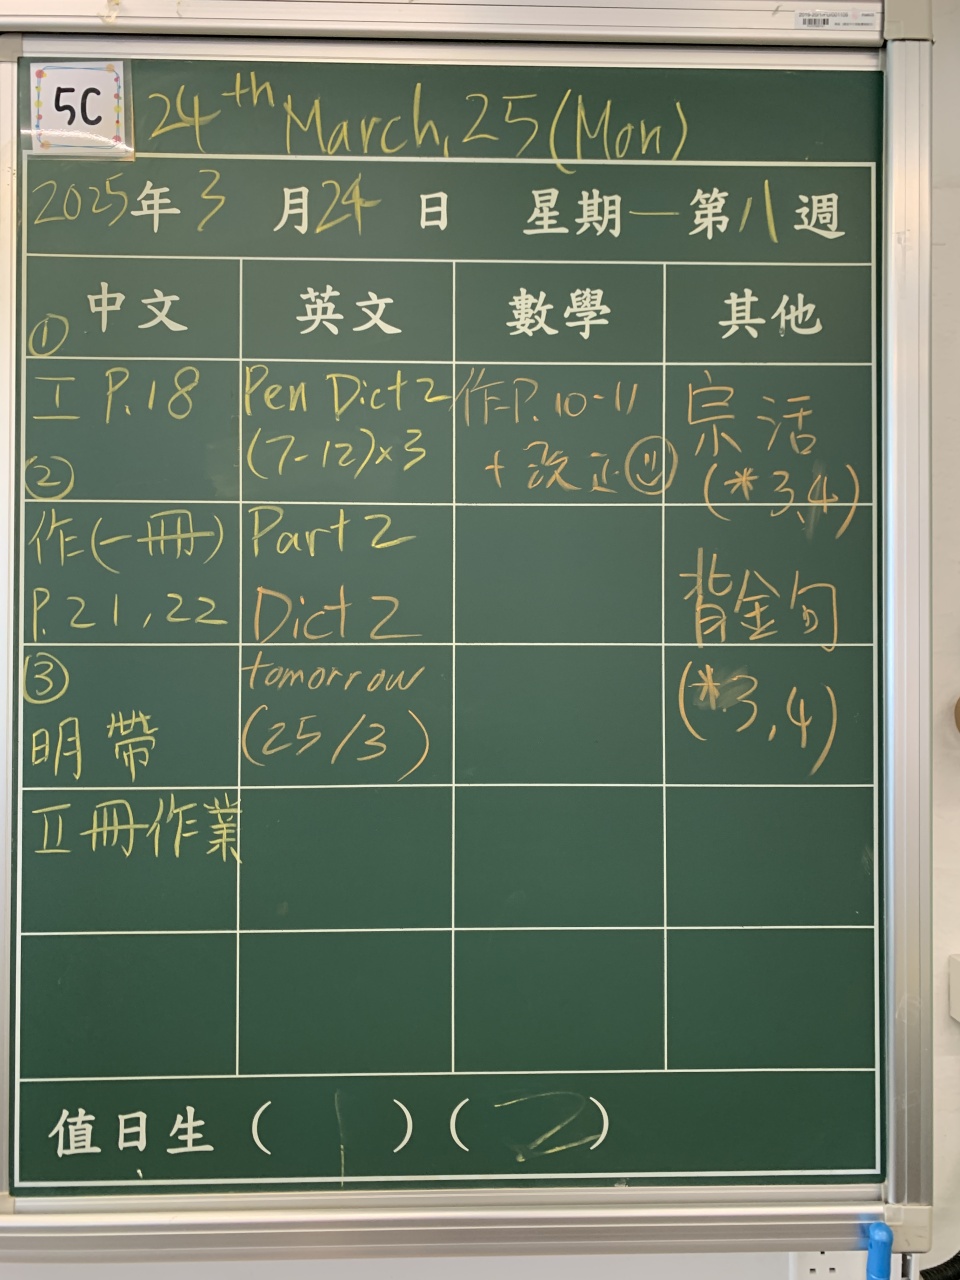 5C
24th March, 25 (Mon)
2025年3月24日 星期一第八週
中文 英文 數學 其他
①
工 P.18
②
作(一冊)
P.21,22
③
明帶
II冊作業
Pen Dict 2
(7-12)×3
Part 2
Dict 2
tomorrow
(25/3)
作P.10-11
+改正
宗活
(*3,4)
背金句
(*3,4)
值日生(1)(2)